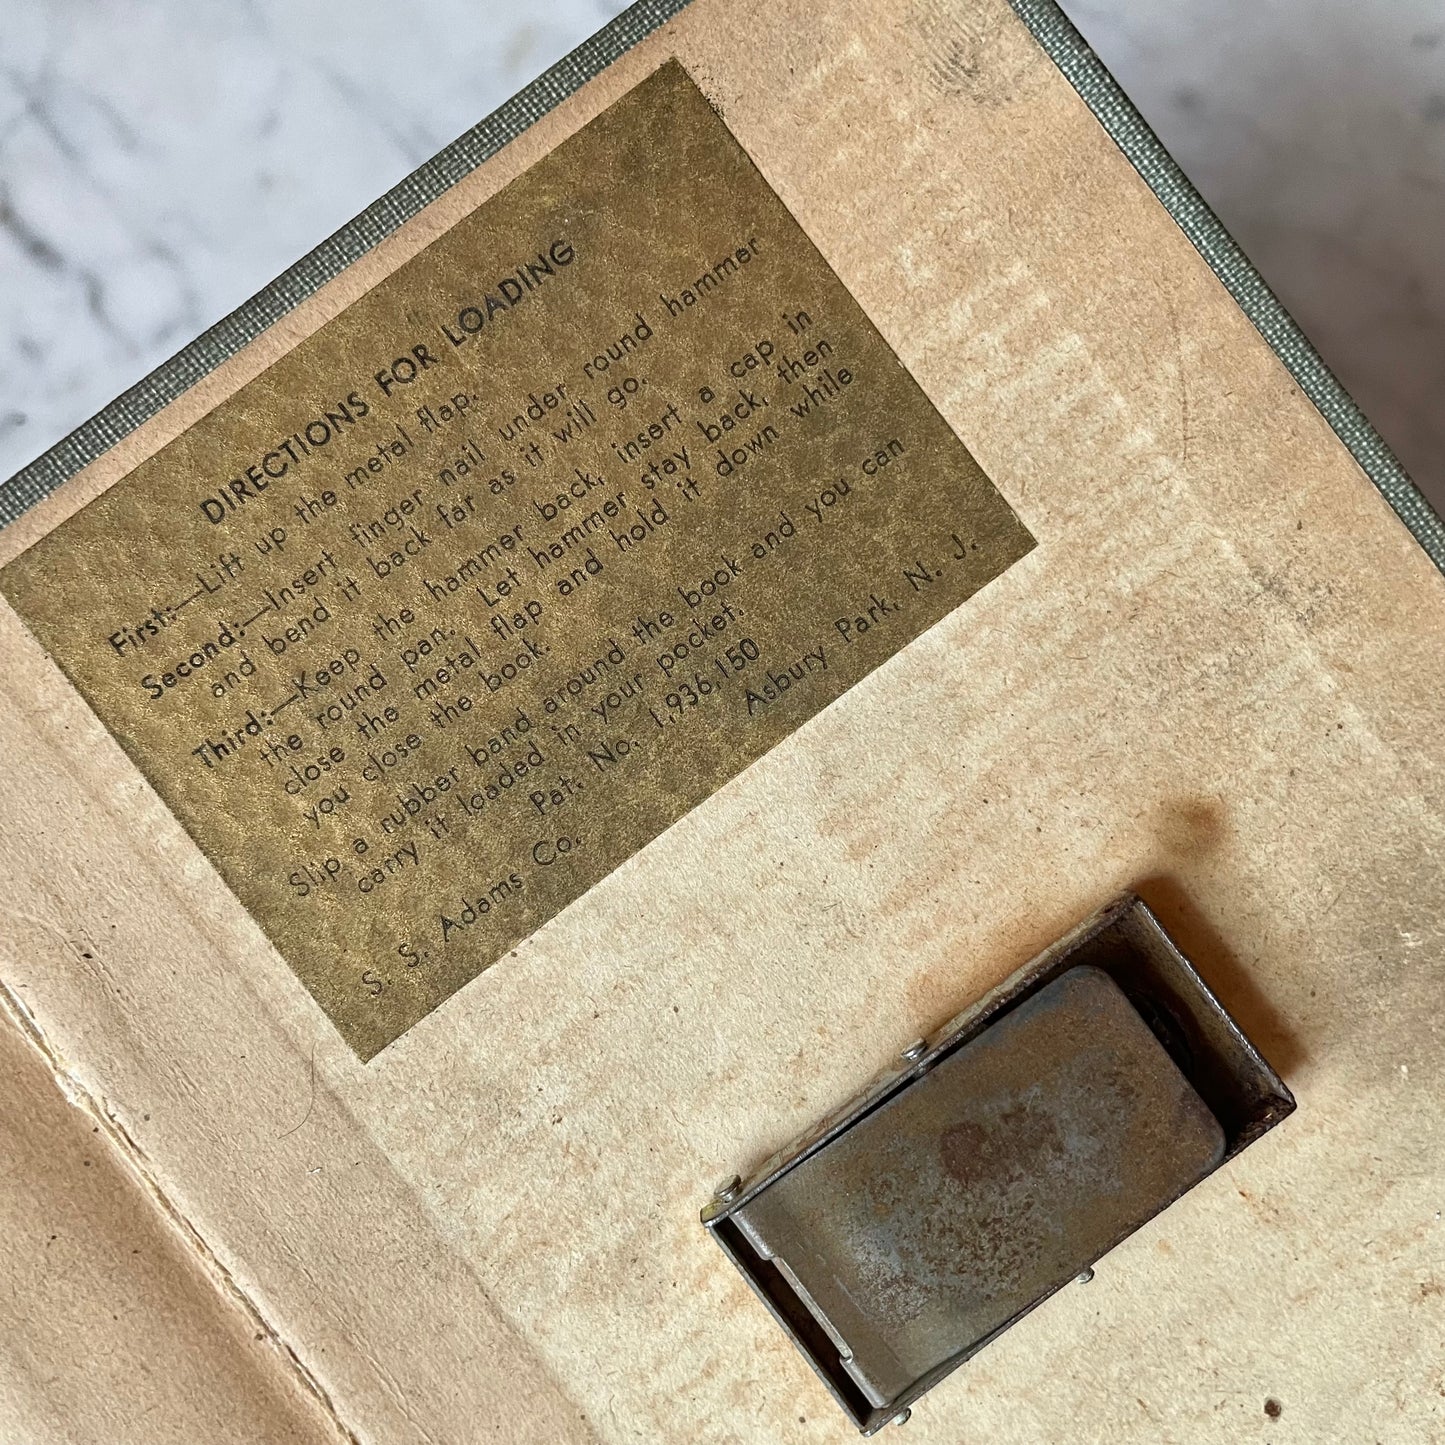 DIRECTIONS FOR LOADING
First:—Lift up the metal flap.
Second:—Insert finger nail under round hammer
and bend it back far as it will go.
Third:—Keep the hammer back, insert a cap in
the round pan. Let hammer stay back, then
close the metal flap and hold it down while
you close the book.
Slip a rubber band around the book and you can
carry it loaded in your pocket.
Pat. No. 1,936,150
S. S. Adams Co. Asbury Park, N. J.